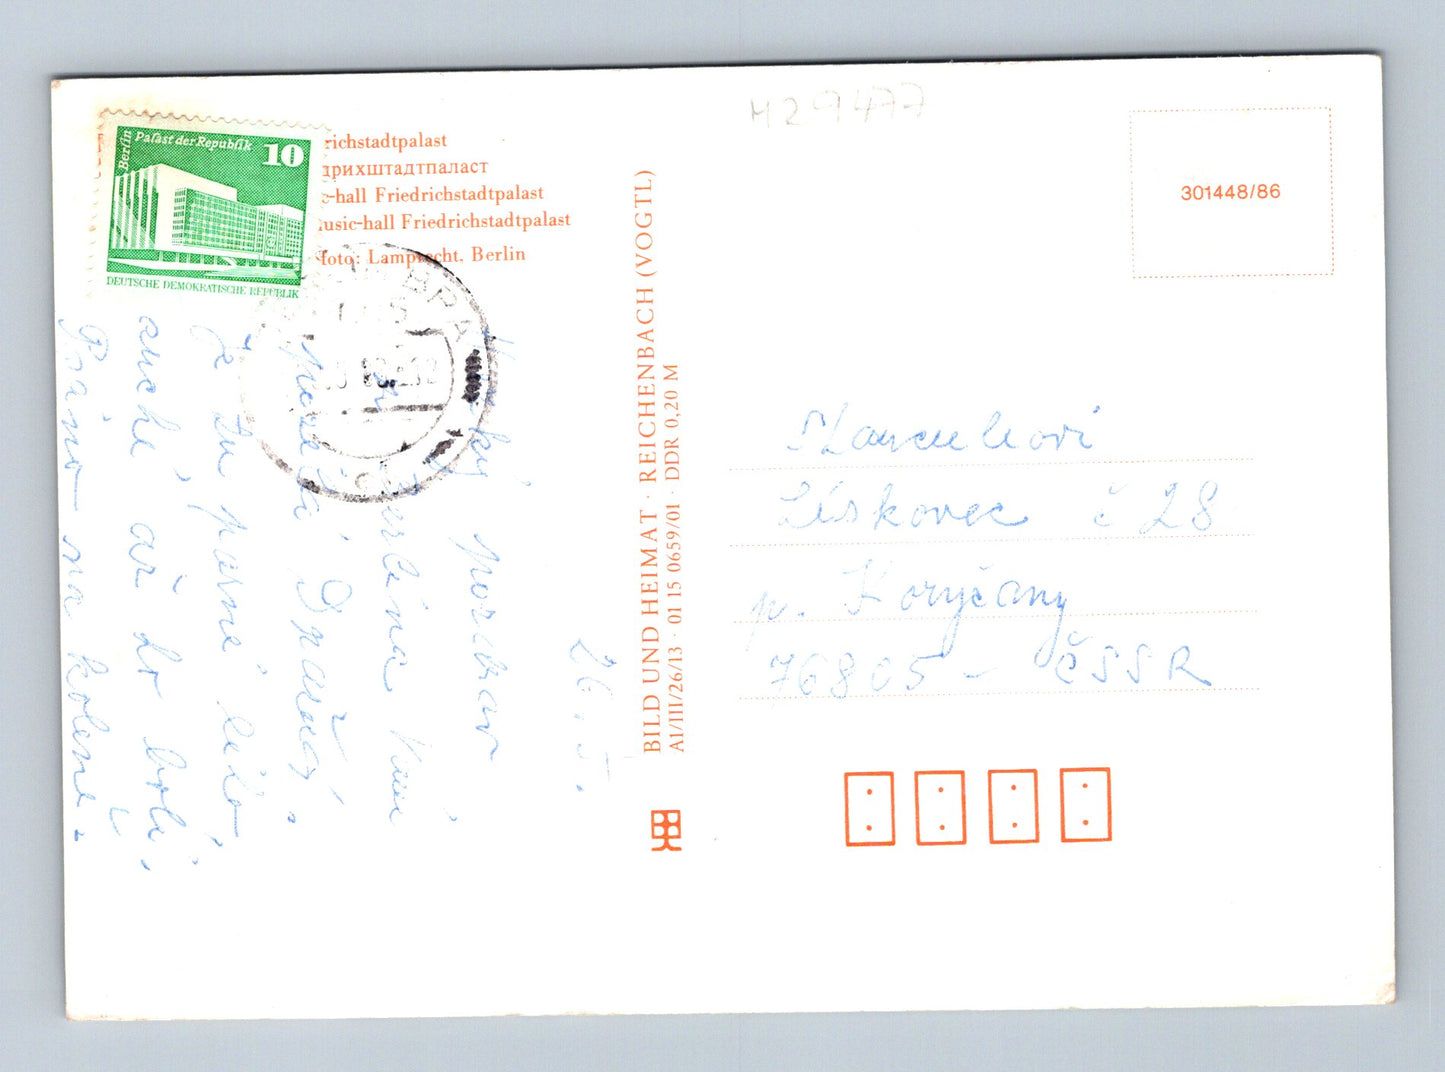 H29477
Berlin
Palast der Republik
10
DEUTSCHE DEMOKRATISCHE REPUBLIK
richstadtpalast
дрихштадтпаласт
c-hall Friedrichstadtpalast
usic-hall Friedrichstadtpalast
Foto: Lamprecht, Berlin
301448/86
BILD UND HEIMAT · REICHENBACH (VOGTL)
A1/III/26/13 · 01 15 0659/01 · DDR 0,20 M
26. 5.
pozdrav
Berlína
je
suché, až to bolí.
Psáno na koleně.
Lískovec č 28
p. Koryčany
76805 – ČSSR